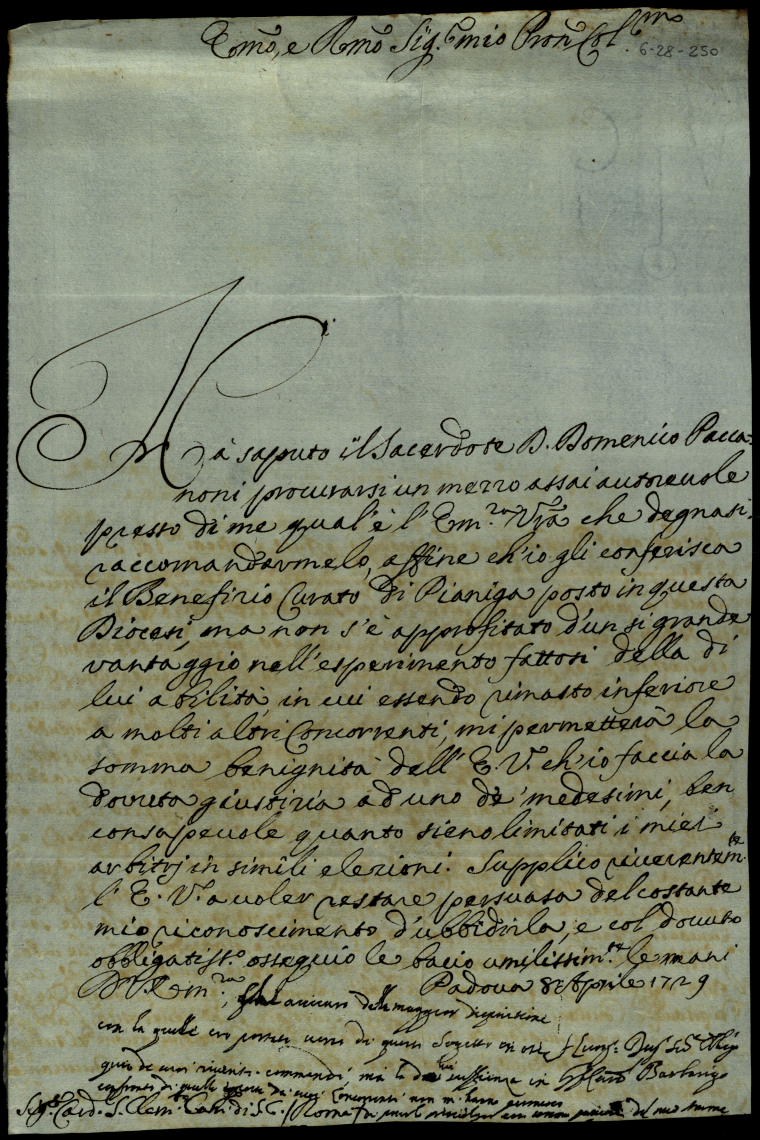 Emō, e Rmō Sig.r mio Pron Col.mo
6-28-250
Hà saputo il Sacerdote D. Domenico Pacca-
noni procurarsi un mezzo assai autorevole
presso di me qual'è l'Em.za Vra che degnasi
raccomandarmelo, affine ch'io gli conferisca
il Benefizio Curato di Pianiga posto in questa
Diocesi, ma non s'è approfitato d'un sì grande
vantaggio nell'esperimento fattosi della di
lui abilità, in cui essendo rimasto inferiore
a molti altri Concorrenti, mi permetterà la
somma benignità dell'E. V. ch'io faccia la
dovuta giustizia ad uno de' medesimi, ben
consapevole quanto sieno limitati i miei
arbitrj in simili elezioni. Supplico riverentem.te
l'E. V.a a voler restare persuasa del costante
mio riconoscimento d'ubbidirla, e col dovuto
obbligatiss.o ossequio le bacio umilissim.te le mani
Di V. Em.za Padova 8 Aprile 1729
della maggior
con la quale di questo Soggetto
commandi, ma la di lui in Barbarigo
Concorrenti non m'hanno permesso
Sig.r Card. S. Clem. Roma del mio